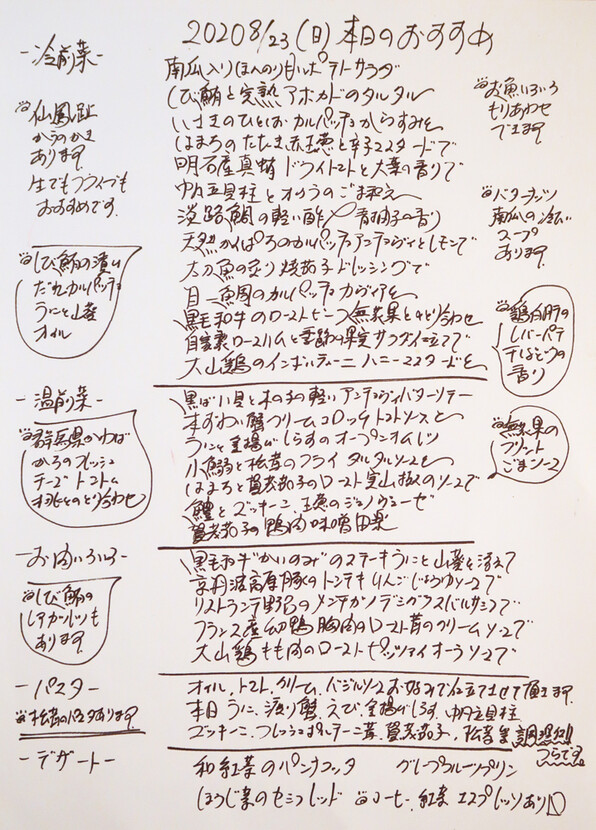 2020 8/23(日)本日のおすすめ
-冷前菜-
南瓜入りほんのり甘いポテトサラダ
しび鮪と完熟アボカドのタルタル
いさきのひと塩カルパッチョからすみを
はまちのたたき玉葱と辛子マスタードで
明石産真蛸ドライトマトと大葉の香りで
帆立貝柱とオクラのごま和え
淡路鯛の軽い酢〆青柚子の香り
天然かんぱちのカルパッチョアンチョヴィとレモンで
太刀魚の炙り焼茄子ドレッシングで
目一鯛のカルパッチョカヴィアを
黒毛和牛のローストビーフ無花果と盛り合わせ
自家製ローストハムと季節の果実サラダ仕立てで
大山鶏のインボルティーニハニーマスタードを
仙鳳趾
からのかき
あります。
生でもフライでも
おすすめです。
しび鮪の漬け
だれカルパッチョ
うにと山葵
オイル
お魚いろいろ
もりあわせ
できます。
バターナッツ
南瓜の冷たい
スープ
あります。
鶏白肝の
レバーパテ
-温前菜-
黒ばい貝ときのこの軽いアンチョヴィバターソテー
本ずわい蟹クリームコロッケトマトソースを
うにと釜揚げしらすのオープンオムレツ
小鰯と松茸のフライタルタルソースを
はまちと賀茂茄子のロースト実山椒のソースで
鱧とズッキーニ、玉葱のジェノヴェーゼ
賀茂茄子の鴨肉味噌田楽
群馬県かわば
からのフレッシュ
チーズトマト
無花果の
フリット
ごまソース
-お肉いろいろ-
黒毛和牛"かいのみ"のステーキうにと山葵を添えて
京丹波高原豚のトンテキりんごじょうゆソースで
リストランテ野呂のメンチカツデミグラスバルサミコで
フランス産幼鴨胸肉のロースト茸のクリームソースで
大山鶏もも肉のローストピッツァイオーラソースで
しび鮪の
レアカツレツも
あります。
-パスタ-
※松茸のパスタあります
オイル、トマト、クリーム、バジルソースお好みで仕立てさせて頂きます。
本日うに、渡り蟹、えび、釜揚げしらす、帆立貝柱
ズッキーニ、フレッシュポルチーニ茸、賀茂茄子、松茸
つらです。
-デザート-
和紅茶のパンナコッタ グレープフルーツプリン
ほうじ茶のセミフレッド コーヒー、紅茶エスプレッソあり